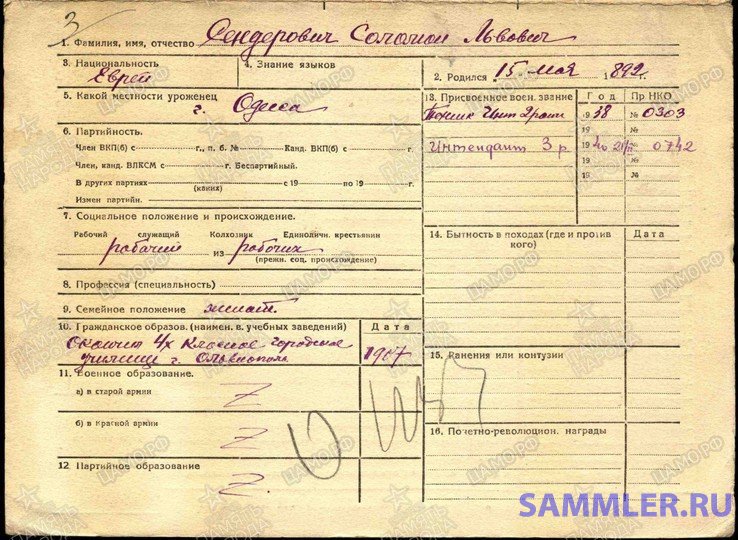 3
1. Фамилия, имя, отчество Сендерович Соломон Львович
3. Национальность
Еврей
4. Знание языков
2. Родился 15 мая 1892 г.
5. Какой местности уроженец
г. Одесса
6. Партийность.
Член ВКП(б) с г., п. б. № Канд. ВКП(б) с г.
Член, канд. ВЛКСМ с г. Беспартийный.
В других партиях с 19 по 19 г.
(каких)
Измен партийн.
7. Социальное положение и происхождение.
Рабочий служащий Колхозник Единоличн. крестьянин
рабочий из рабочих
(прежн. соц. происхождение)
8. Профессия (специальность)
9. Семейное положение женат.
10. Гражданское образов. (наимен. в. учебных заведений) Дата
Окончил 4х классное городское
училище г. Ольвиополь 1907
11. Военное образование.
а) в старой армии Z
б) в Красной армии Z
12 Партийное образование Z
13. Присвоенное воен. звание Год Пр НКО
Техник Инт 2 ранг 1938 № 0303
19 №
Интендант 3 р. 1940 21/II № 0742
19 №
14. Бытность в походах (где и против кого) Дата
15. Ранения или контузии
16. Почетно-революцион. награды
ЦАМО.РФ
ПАМЯТЬ НАРОДА
SAMMLER.RU